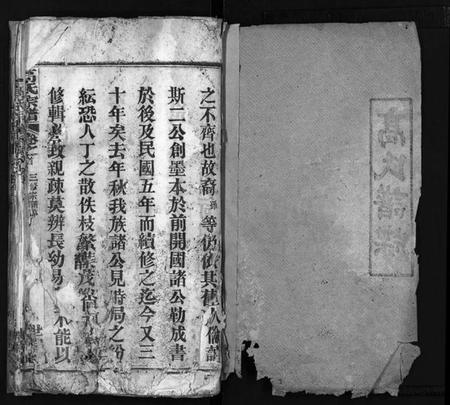 高氏譜
之不齊也故裔孫等仍依其舊人倫
斯二公創墨本於前開國諸公勒成書
於後及民國五年而續修之迄今又三
十年矣去年秋我族諸公見時局之紛
紜恐人丁之散佚枝繁葉茂
修輯必致親疎莫辨長幼易不能以
高氏宗譜